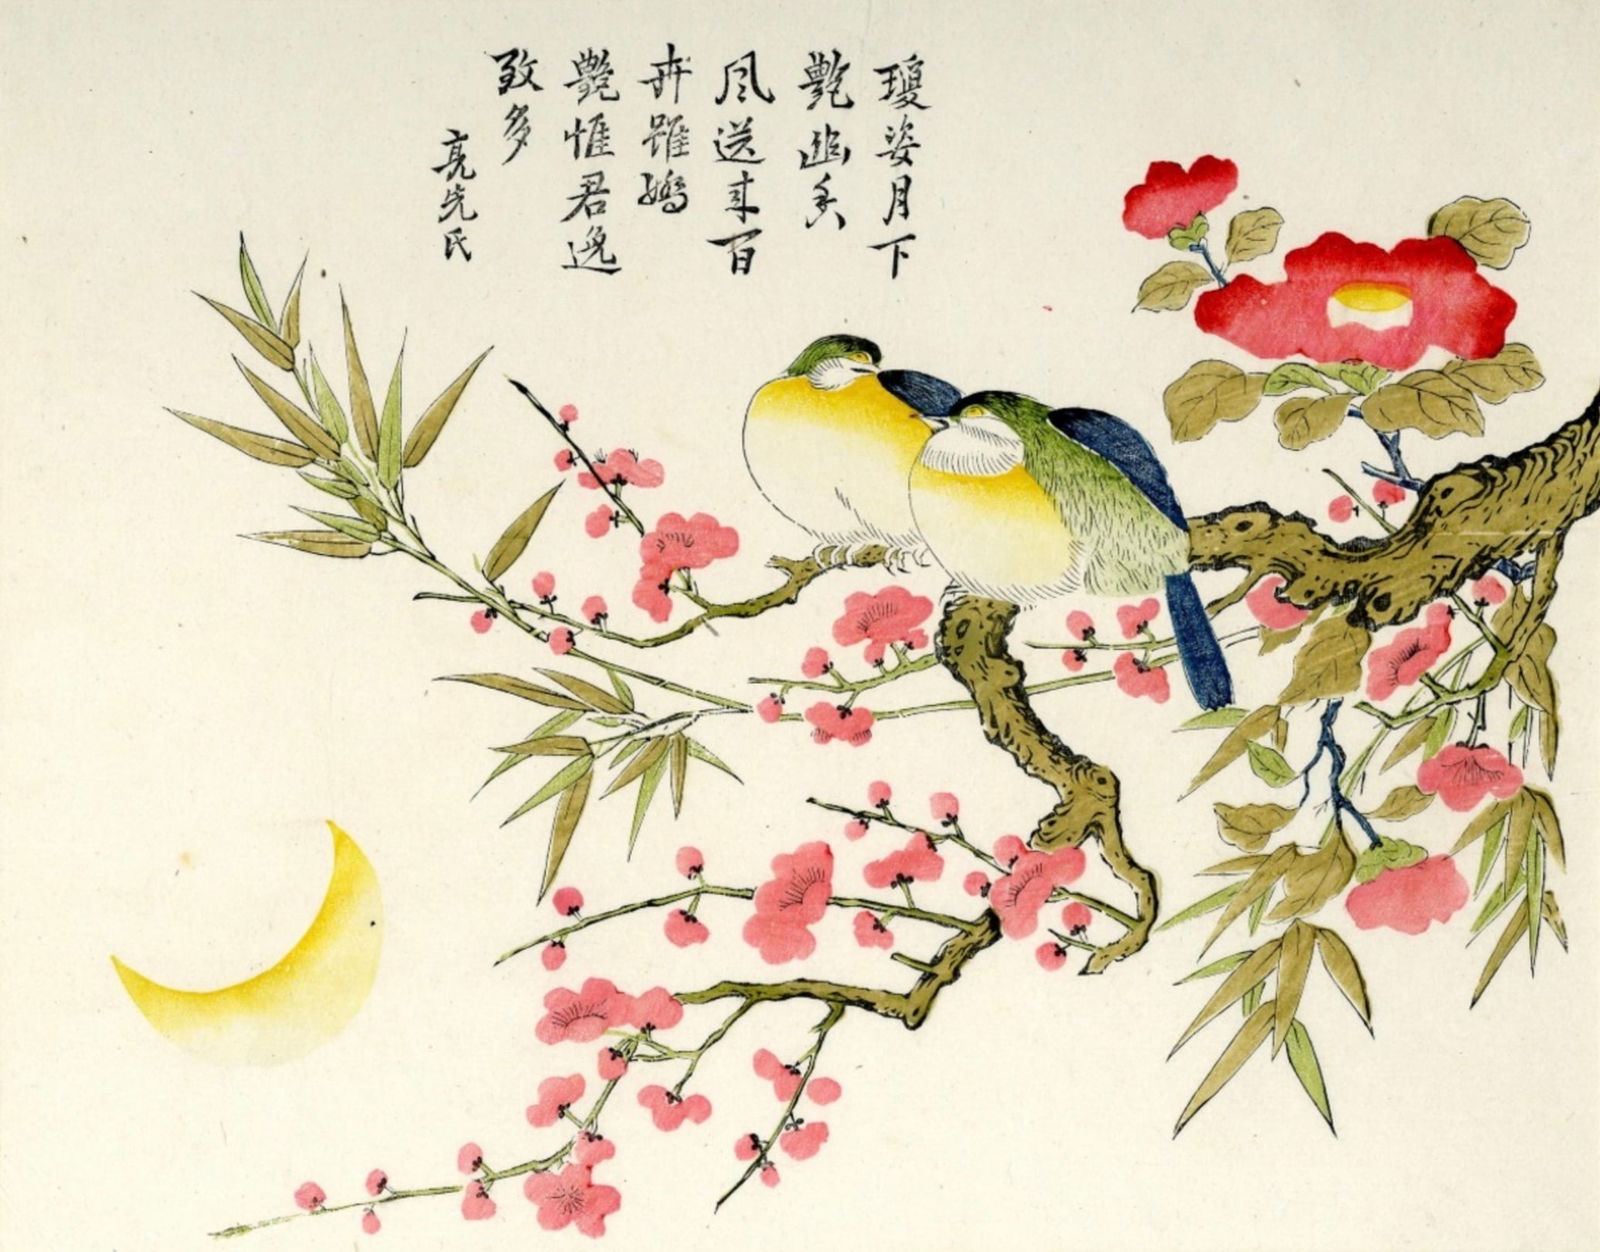 瓊姿月下
艷幽香
風送來百
卉雖嬌
艷惟君逸
致多
亮先氏